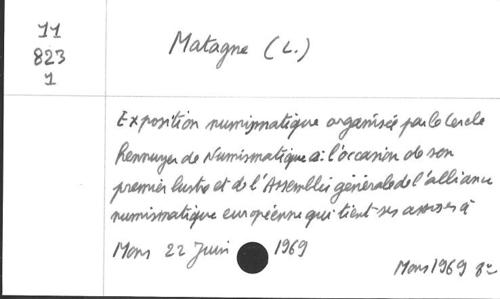 11
823
1
Matagne (L.)
Exposition numismatique organisée par le Cercle
Hennuyer de Numismatique à l'occasion de son
premier lustre et de l'Assemblée générale de l'alliance
numismatique européenne qui tient ses assises à
Mons 22 Juin 1969
Mons 1969 8º